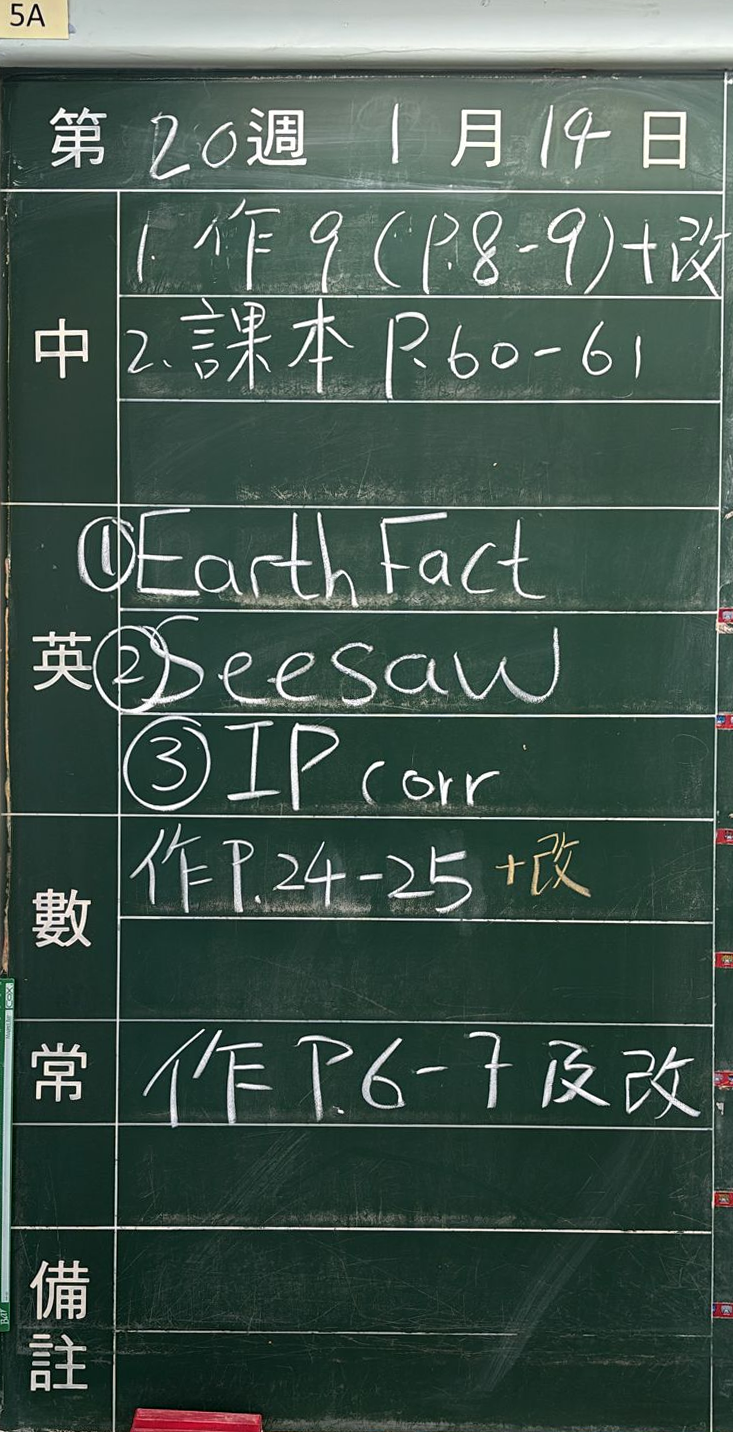 5A
第 20 週 1 月 14 日
中
1. 作9 (P.8-9)+改
2. 課本 P.60-61
英
①Earth Fact
②Seesaw
③IP corr
數
作P.24-25 +改
常
作P.6-7及改
備註